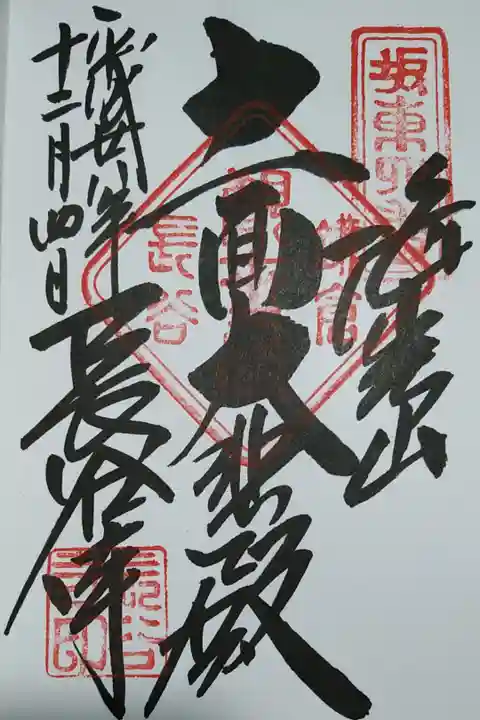 坂東四番
海光山
十一面大悲殿
鎌倉
長谷
平成廿八年
十二月四日
長谷寺